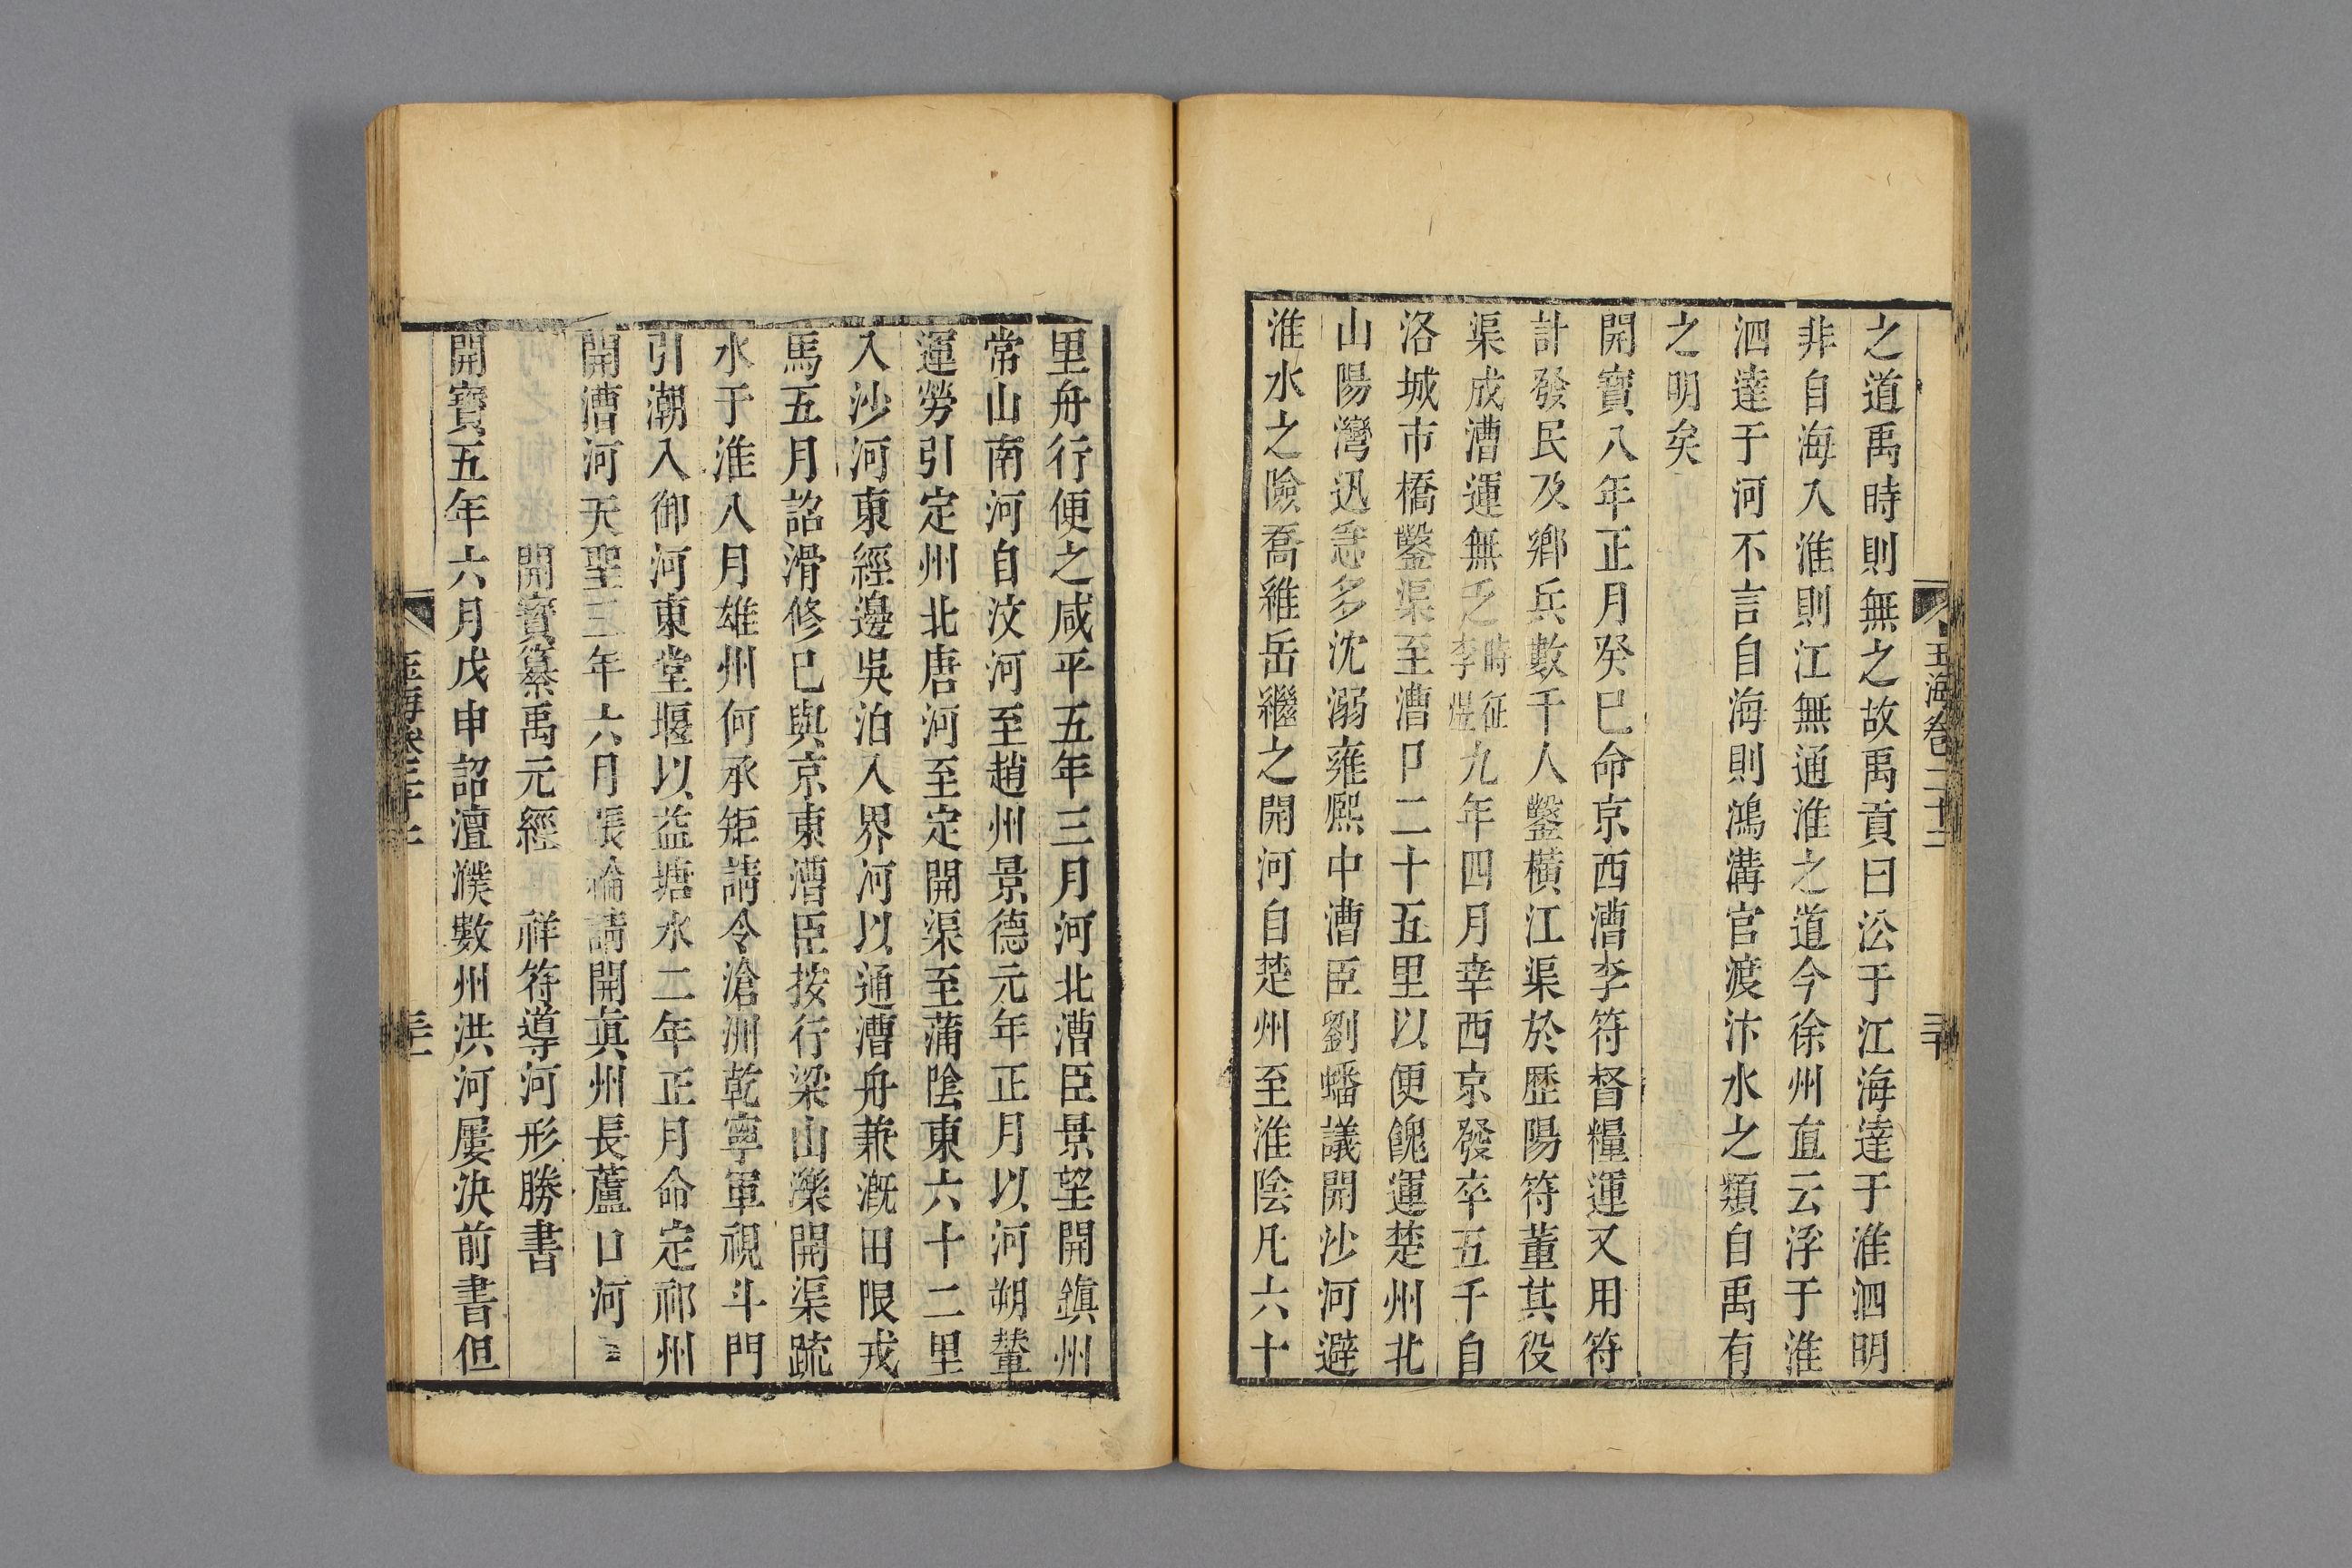 玉海卷二十二
三十
之道禹時則無之故禹貢曰㳂于江海達于淮泗明
非自海入淮則江無通淮之道今徐州直云浮于淮
泗達于河不言自海則鴻溝官渡汴水之類自禹有
之明矣
開寶八年正月癸巳命京西漕李符督糧運又用符
計發民及鄉兵數千人鑿橫江渠於歷陽符董其役
渠成漕運無乏時征李煜九年四月幸西京發卒五千自
洛城市橋鑿渠至漕口二十五里以便餽運楚州北
山陽灣迅急多沈溺雍熙中漕臣劉蟠議開沙河避
淮水之險喬維岳繼之開河自楚州至淮陰凡六十
里舟行便之咸平五年三月河北漕臣景望開鎮州
常山南河自汶河至趙州景德元年正月以河朔輦
運勞引定州北唐河至定開渠至蒲陰東六十二里
入沙河東經邊吳泊入界河以通漕舟兼漑田限戎
馬五月詔滑修巳與京東漕臣按行梁山濼開渠疏
水于淮八月雄州何承矩請令滄州乾寧軍視斗門
引潮入御河東堂堰以益塘水二年正月命定祁州
開漕河天聖三年六月張綸請開眞州長蘆口河
開寶纂禹元經 祥符導河形勝書
開寶五年六月戊申詔澶濮數州洪河屢決前書但